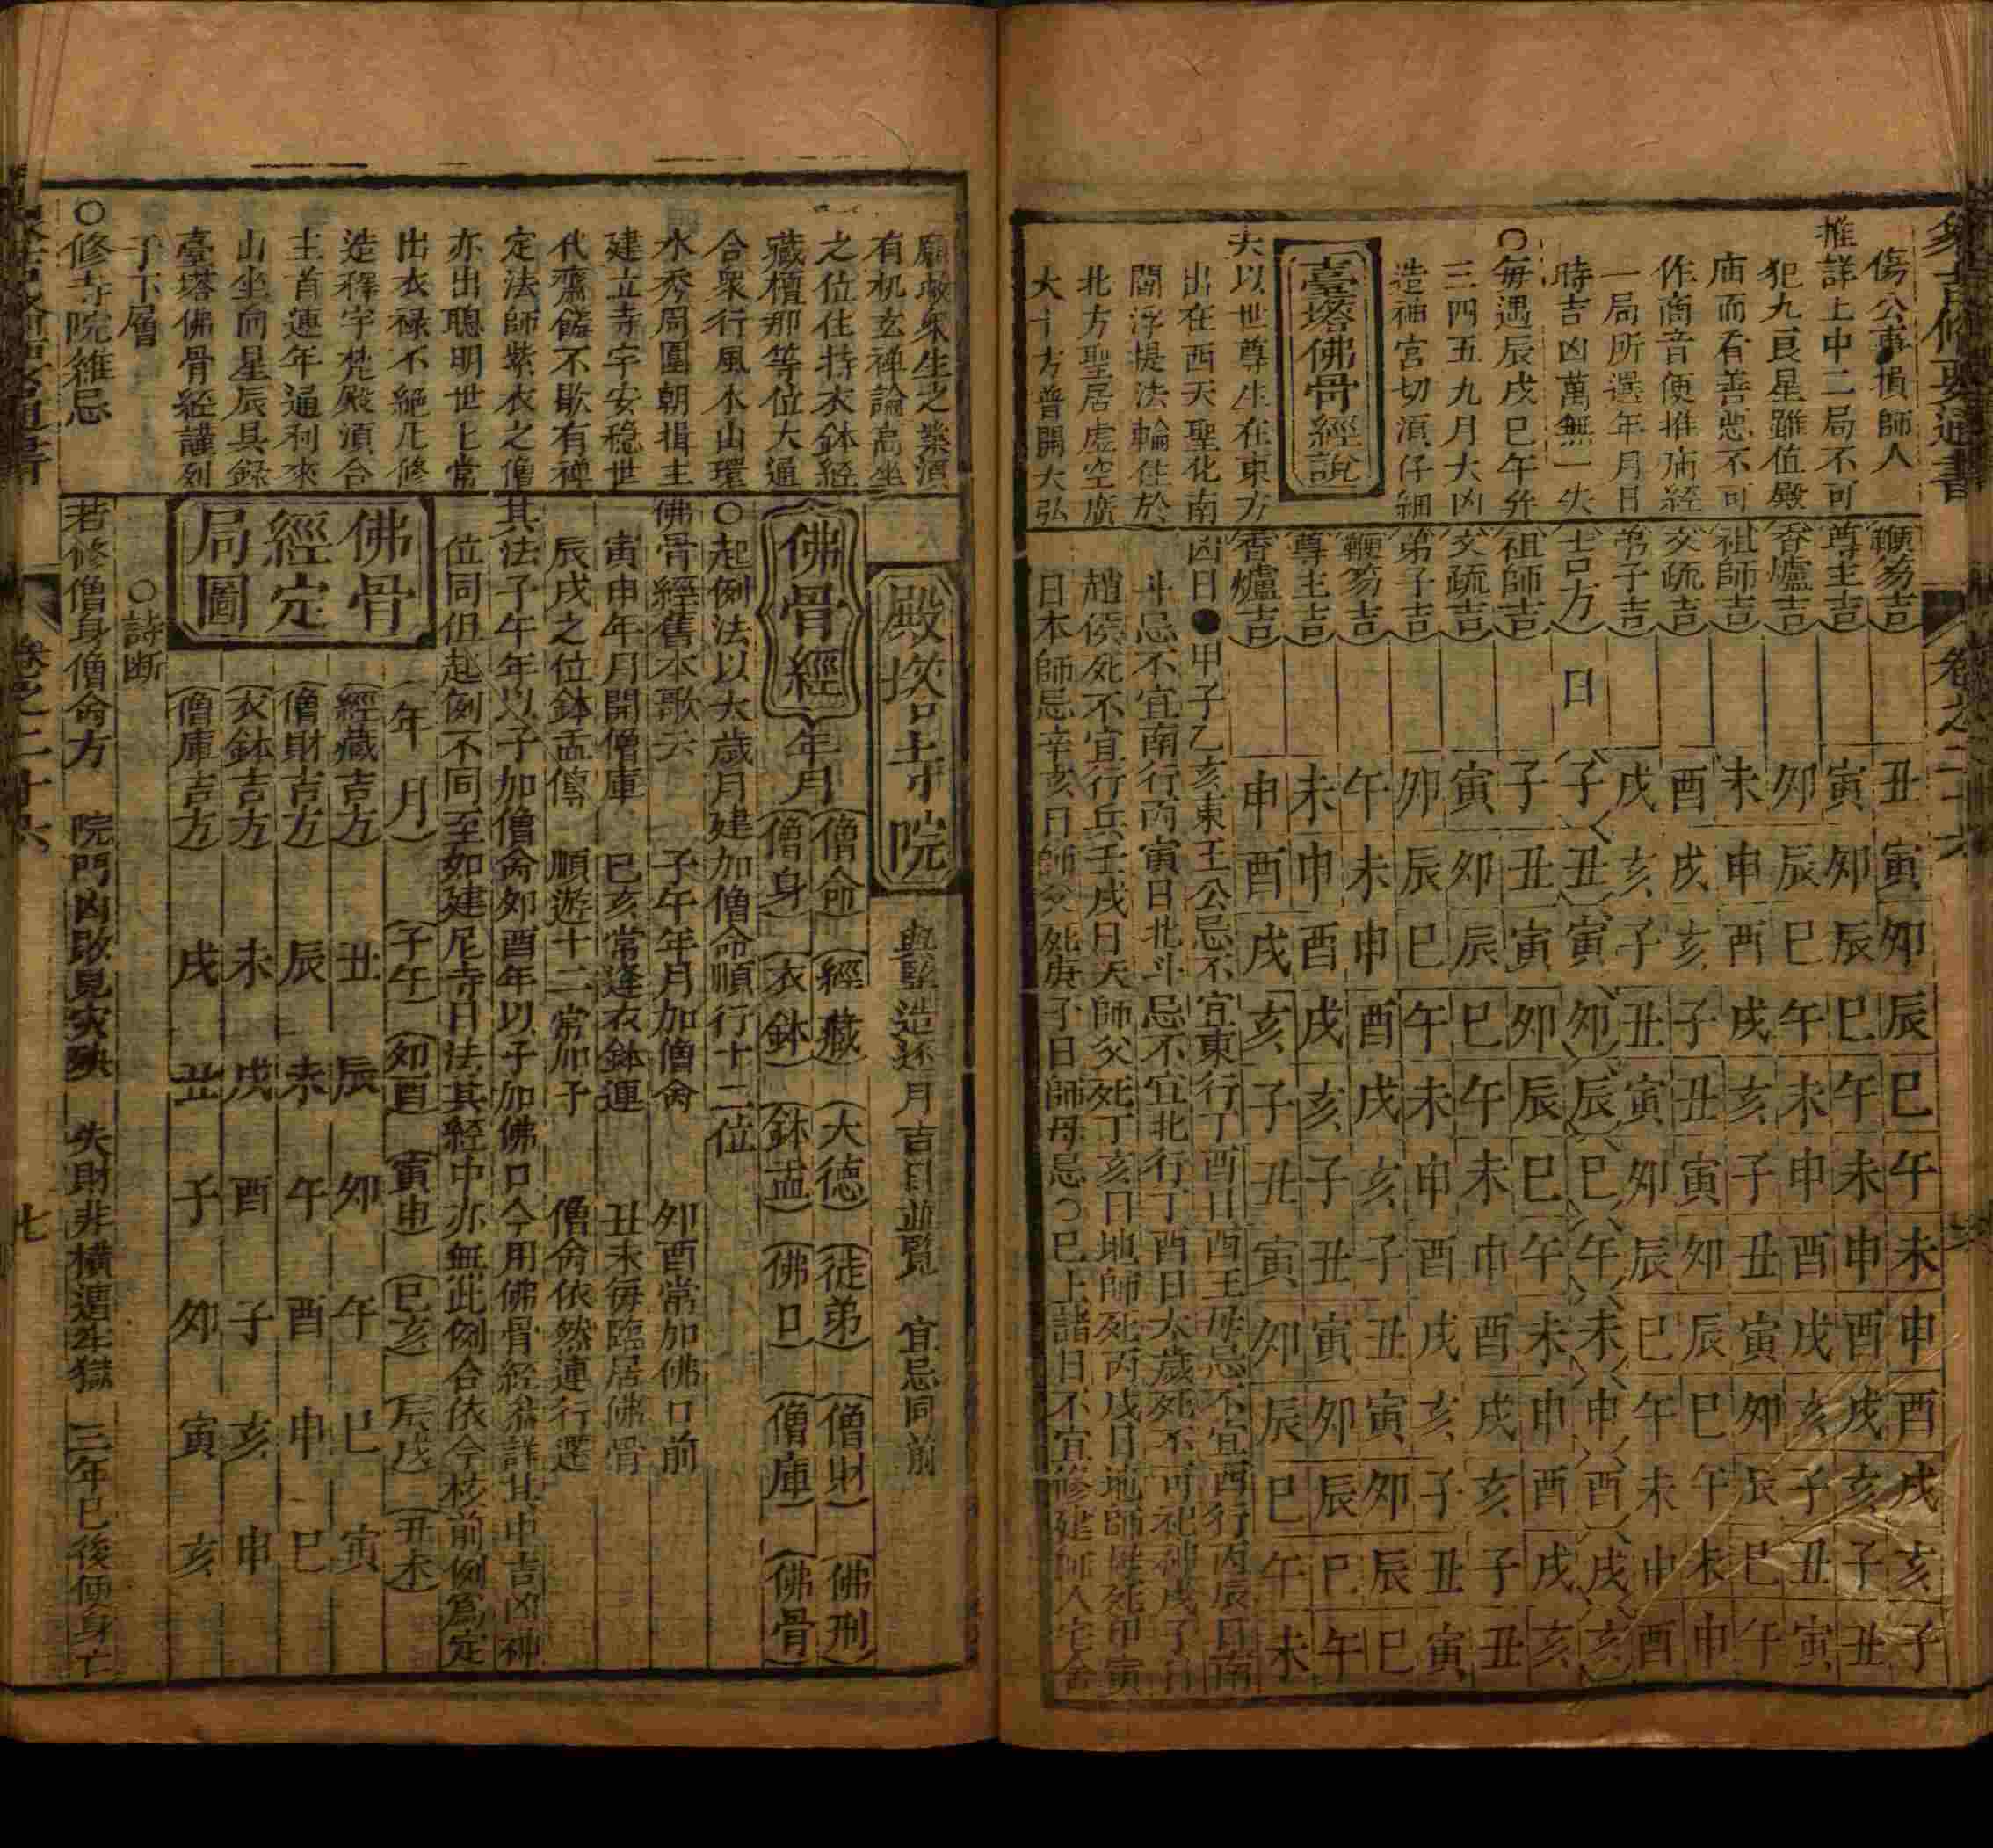 象吉備要通書
卷之二十六
傷公事損師人
推詳上中二局不可
犯九良星雖值殿
庙而看善惡不可
作商音便推庙經
一局所選年月日
時吉凶萬無一失
○每遇辰戌巳午并
三四五九月大凶
造神宮切須仔細
臺塔佛骨經說
夫以世尊生在東方
出在西天聖化南
閻浮提法輪住於
北方聖居虛空廣
大十方普開大弘
鞭笏吉 丑寅卯辰巳午未申酉戌亥子
尊主吉 寅卯辰巳午未申酉戌亥子丑
香爐吉 卯辰巳午未申酉戌亥子丑寅
祖師吉 未申酉戌亥子丑寅卯辰巳午
文疏吉 酉戌亥子丑寅卯辰巳午未申
弟子吉 戌亥子丑寅卯辰巳午未申酉
吉方 日 子丑寅卯辰巳午未申酉戌亥
祖師吉 子丑寅卯辰巳午未申酉戌亥
文疏吉 寅卯辰巳午未申酉戌亥子丑
弟子吉 卯辰巳午未申酉戌亥子丑寅
鞭笏吉 午未申酉戌亥子丑寅卯辰巳
尊主吉 未申酉戌亥子丑寅卯辰巳午
香爐吉 申酉戌亥子丑寅卯辰巳午未
凶日●甲子乙亥東王公忌不宜東行丁酉日西王母忌不宜西行丙辰日南
斗忌不宜南行丙寅日北斗忌不宜北行丁酉日大歲死不可祀神戊子日
趙侯死不宜行兵壬戌日天師父死丁亥日地師死丙戌日地師母死甲寅
日本師忌辛亥日師父死庚子日師母忌○巳上諸日不宜修建師人宅舍
廟救眾生之業須
有机玄禪論高坐
之位住持衣鉢經
藏檀那等位大通
合眾行風水山環
水秀周圍朝揖主
建立寺宇安穩世
代齋饈不歇有禪
定法師紫衣之僧
亦出聰明世上常
出衣祿不絕凡修
造釋宇梵殿須合
主首連年通利來
山坐向星辰具錄
臺塔佛骨經謹列
于下層
○修寺院雜忌
殿塔寺院 與豎造逐月吉日並覽 宜忌同前
佛骨經年月 僧命 經藏 大德 徒弟 僧財 佛刑
僧身 衣鉢 鉢盂 佛口 僧庫 佛骨
○起例法以大歲月建加僧命順行十二位
佛骨經舊本歌云 子午年月加僧命 卯酉常加佛口前
寅申年月開僧庫 巳亥常逢衣鉢連 丑未每臨居佛骨
辰戌之位鉢盂傳 順遊十二常加子 僧命依然連行選
其法子午年以子加僧命卯酉年以子加佛口今用佛骨經若詳其中吉凶神
位同但起例不同至如建尼寺日法其經中亦無此例合依今核前例為定
佛骨經定局圖
年月 子午 卯酉 寅申 巳亥 辰戌 丑未
經藏吉方 丑 辰 卯 午 巳 寅
僧財吉方 辰 未 午 酉 申 巳
衣鉢吉方 未 戌 酉 子 亥 申
僧庫吉方 戌 丑 子 卯 寅 亥
○詩断
若修僧身僧命方 院門凶敗見灾殃 失財非橫遭牢獄 三年已後便身亡
卷之二十六
七